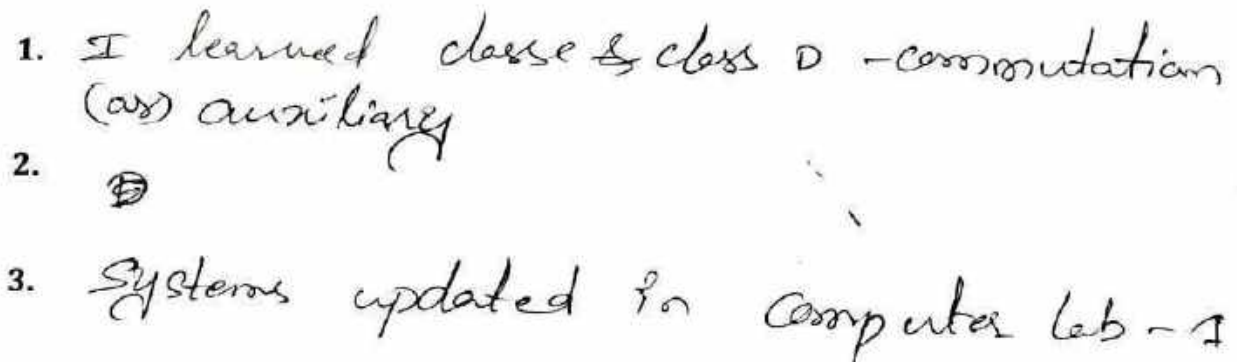 1. I learned classe & class D -commutation
(or) auxiliary
2.
3. Systems updated in Computer Lab-1